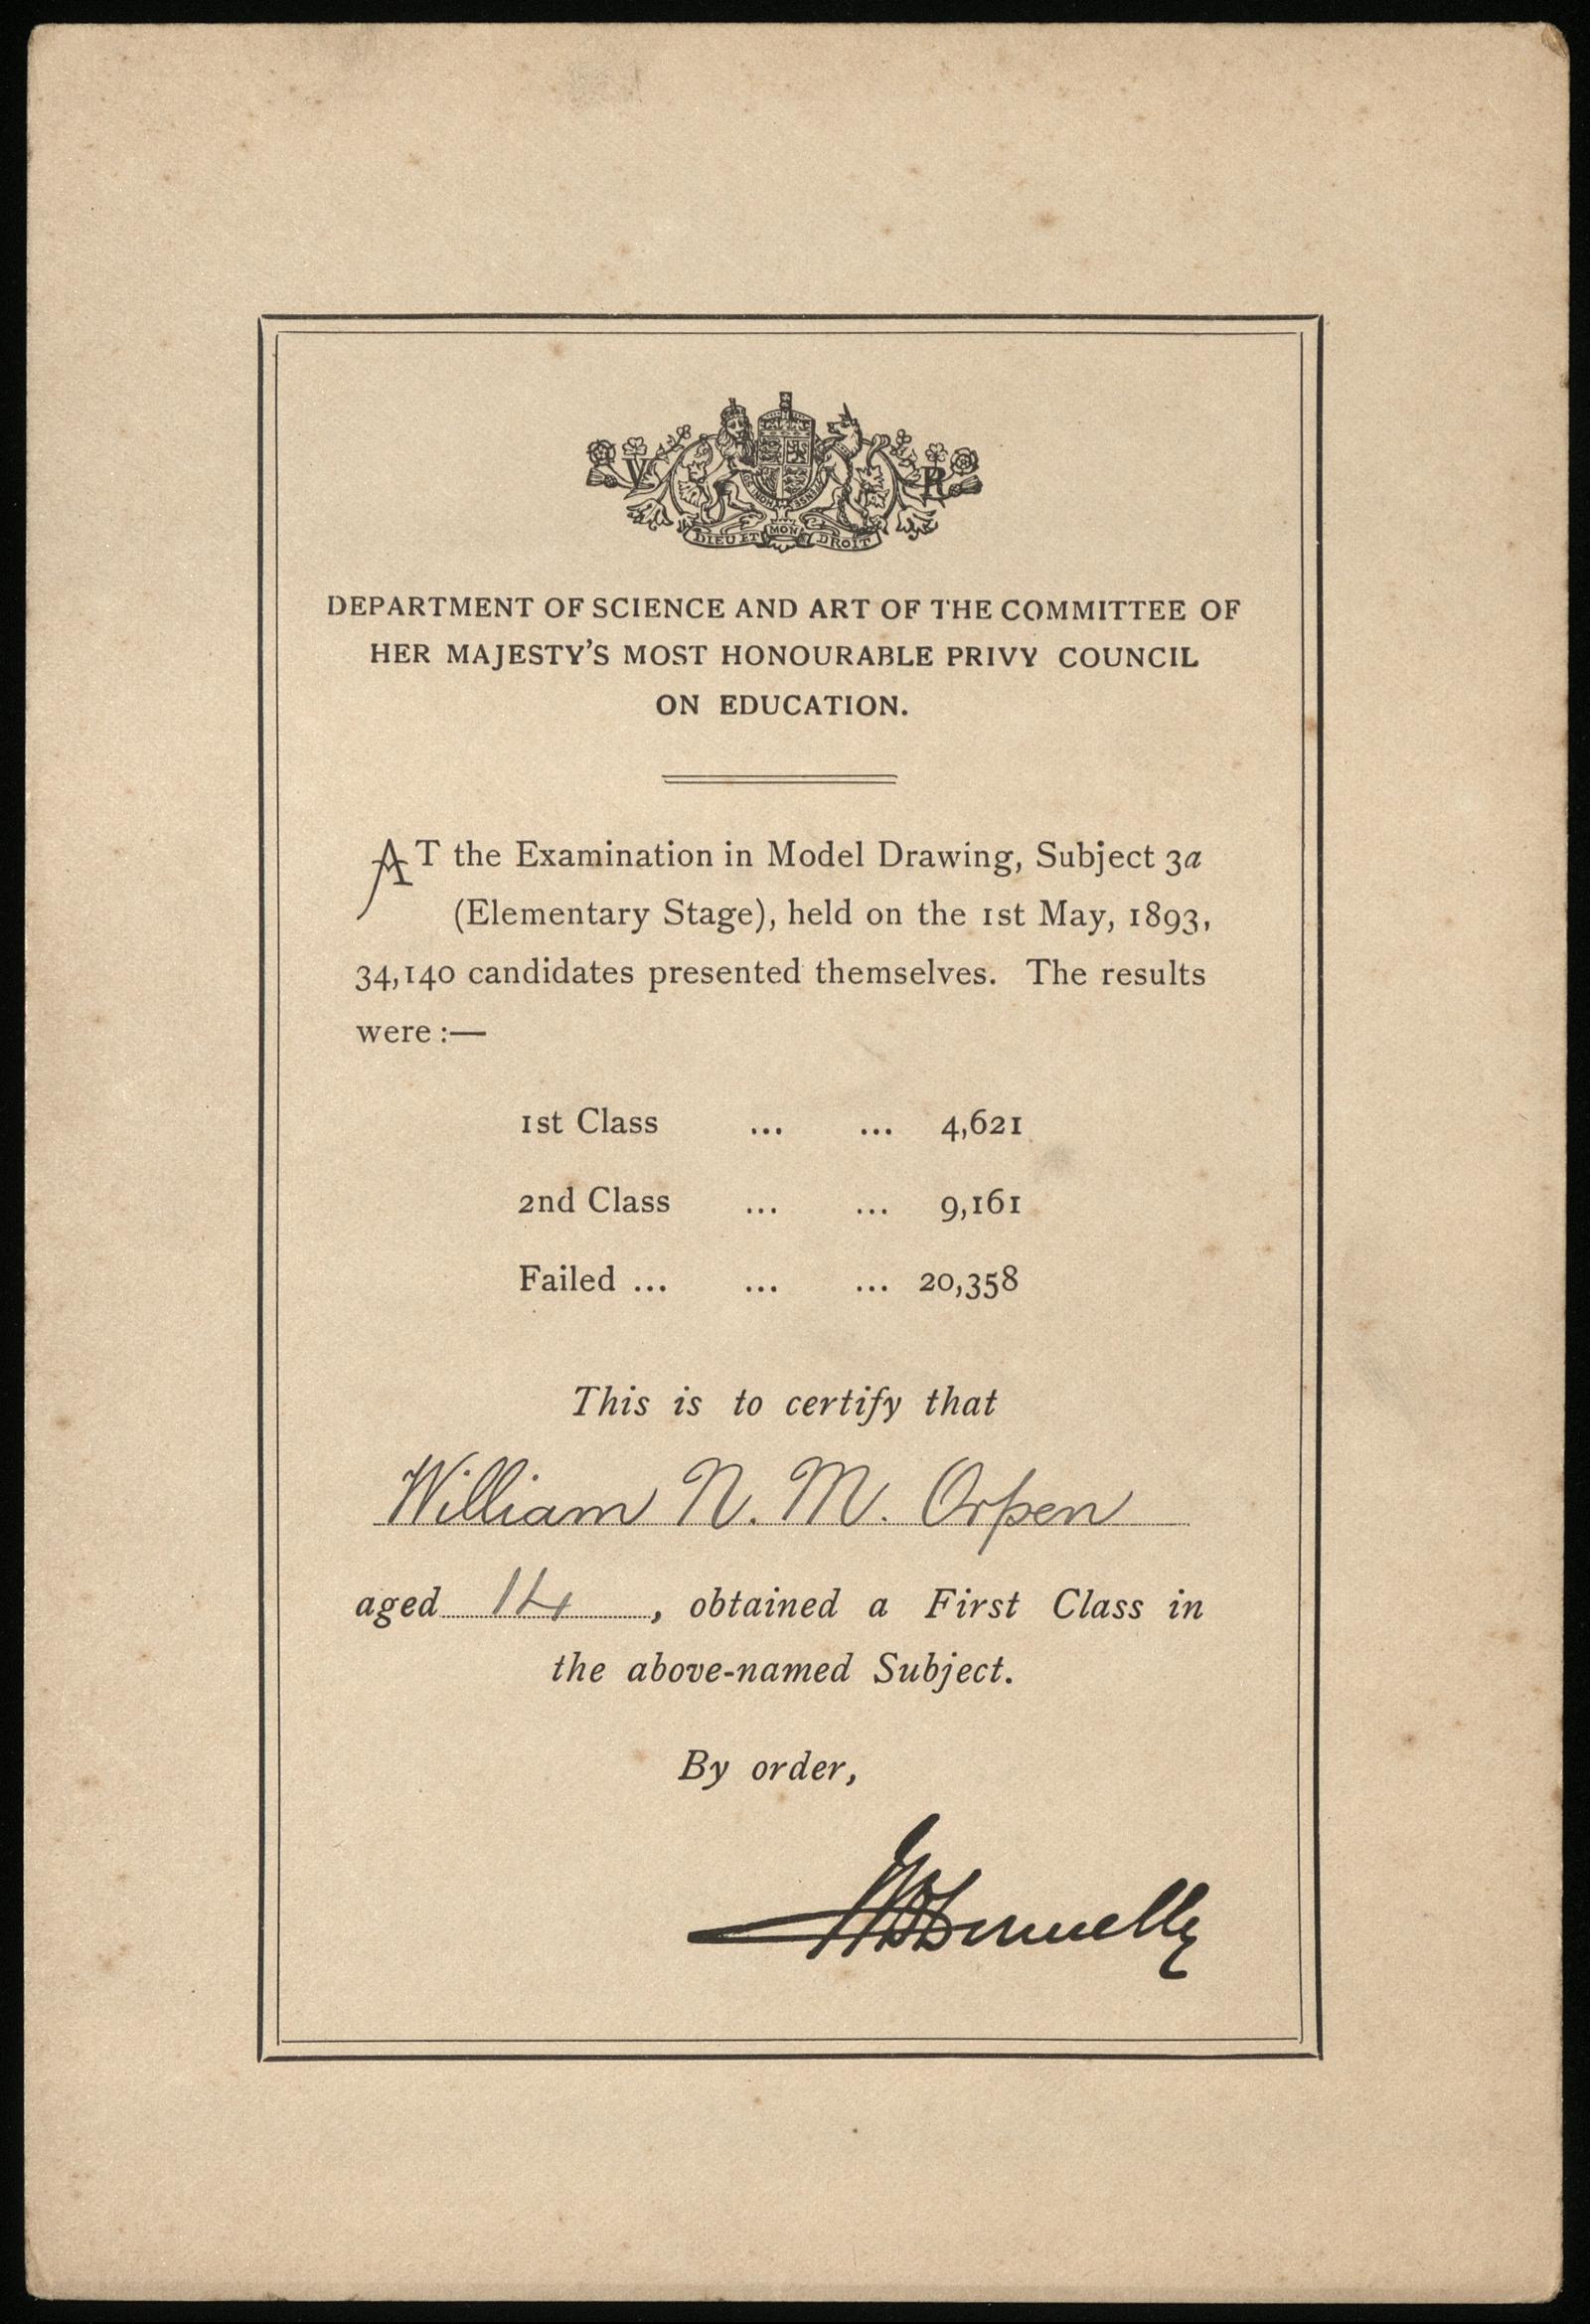 V R
DIEU ET MON DROIT
DEPARTMENT OF SCIENCE AND ART OF THE COMMITTEE OF
HER MAJESTY'S MOST HONOURABLE PRIVY COUNCIL
ON EDUCATION.
AT the Examination in Model Drawing, Subject 3a
(Elementary Stage), held on the 1st May, 1893,
34,140 candidates presented themselves. The results
were :—
1st Class ... ... 4,621
2nd Class ... ... 9,161
Failed ... ... ... 20,358
This is to certify that
William N. M. Orpen
aged 14, obtained a First Class in
the above-named Subject.
By order,
Donnelly